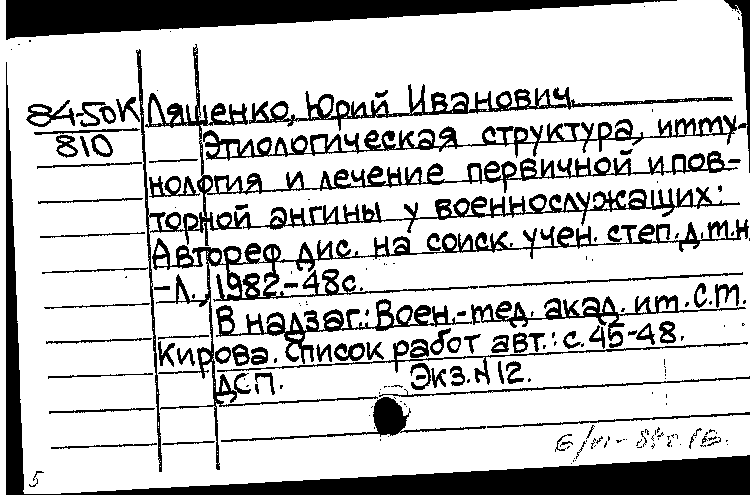 84-50К Ляшенко, Юрий Иванович.
810 Этиологическая структура, имму-
нология и лечение первичной и пов-
торной ангины у военнослужащих:
Автореф. дис. на соиск. учен. степ. д.м.н.
-Л., 1982.-48с.
В надзаг.: Воен.-мед. акад. им. С.М.
Кирова. Список работ авт.: с.45-48.
ДСП. Экз.N12.
5